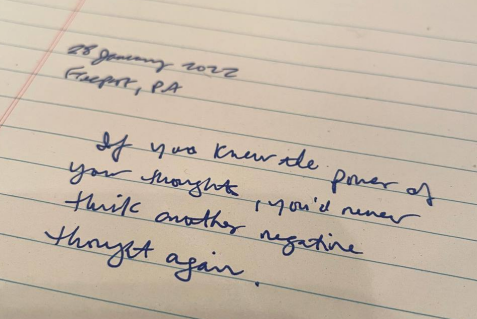 28 January 2022
Freeport, PA
If you knew the power of
your thoughts, you'd never
think another negative
thought again.